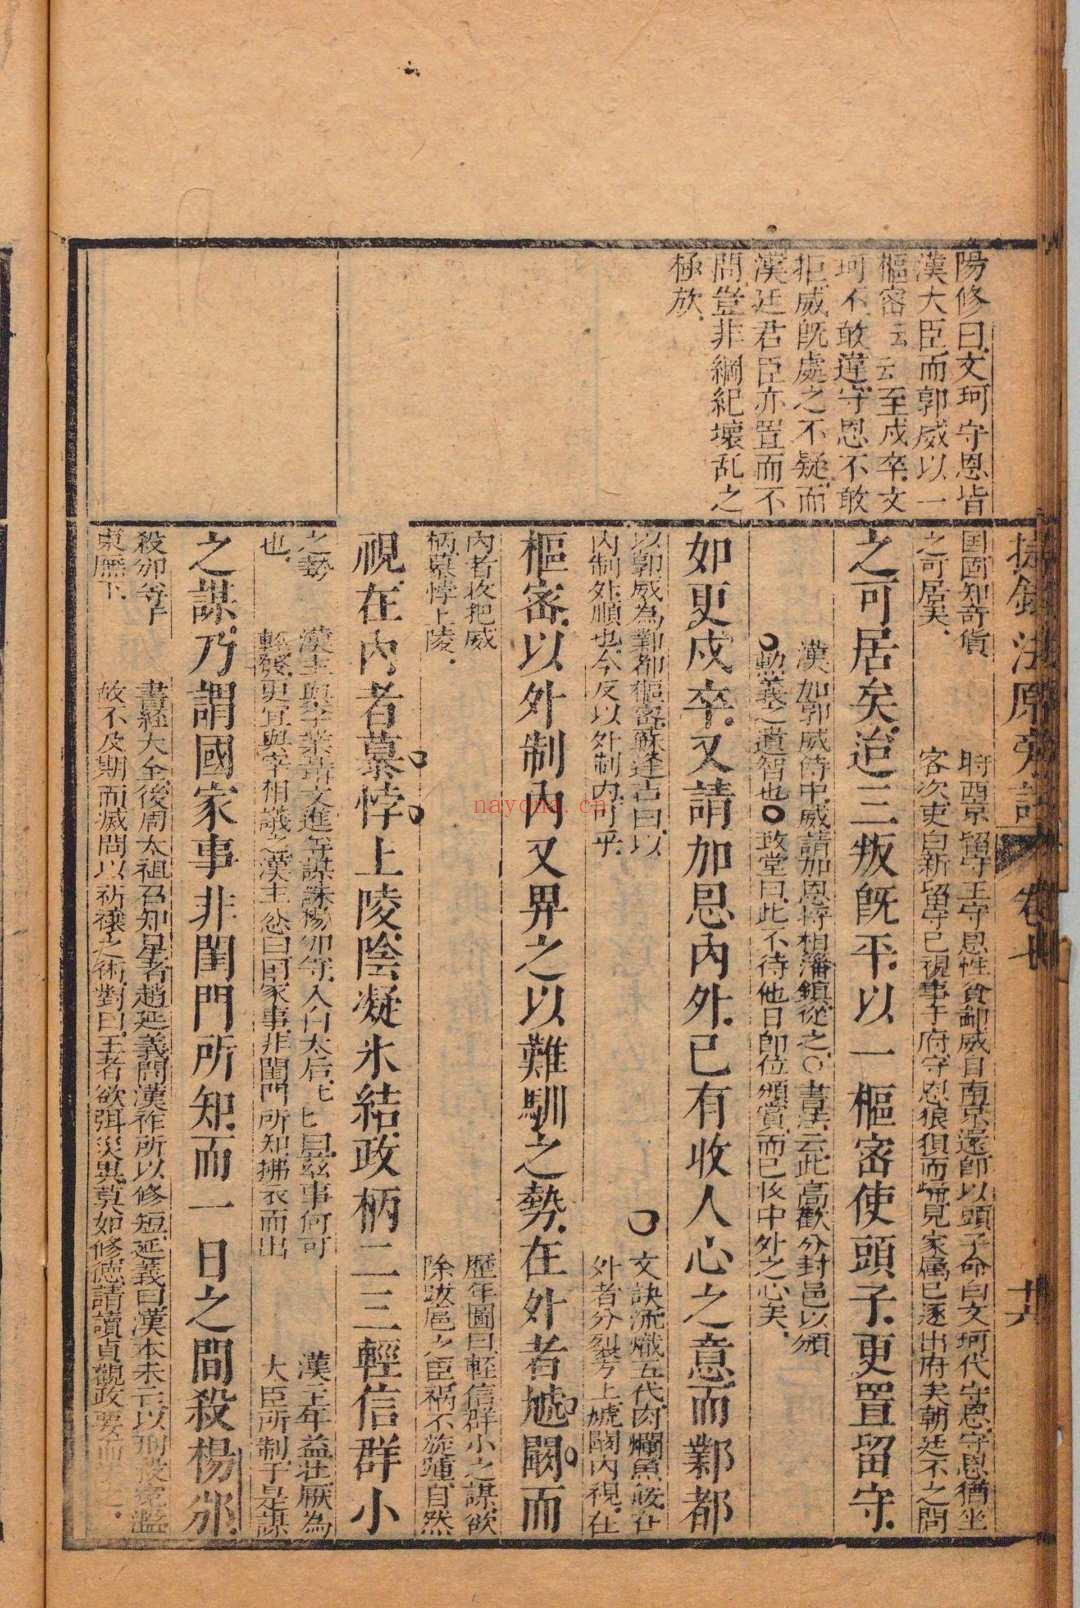 陽修曰文珂守恩皆
漢大臣而郭威以一
樞密云云至戍卒文
珂不敢違守恩不敢
拒威既處之不疑而
漢廷君臣亦置而不
問豈非綱紀壞乱之
極放
卷七
廿六
国固知奇貨
之可居矣
時西京留守王守恩性貪鄙威自南京還即以頭子命白文珂代守恩守恩猶坐
客次吏白新留守已視事于府守恩狼狽而歸見家屬已逐出府矣朝廷不之問
之可居矣迨三叛既平以一樞密使頭子更置留守
漢加郭威侍中威請加恩將相藩鎮從之○書法云此高歡分封邑以頒
勳義之遺智也○敢堂曰此不待他日即位頒賞而已收中外之心矣
如更戍卒又請加恩內外已有收人心之意而鄴都
以郭威為鄴都樞密蘇逢吉曰以
內制外順也今反以外制內可乎
文訣流熾五代肉爛魚餒在
外者分裂于上虓闞內視在
樞密以外制內又畀之以難馴之勢在外者虓闞而
內者收把威
柄慕悖上陵
歷年圖曰輕信群小之謀欲
除跋扈之臣禍不旋踵自然
視在內者慕悖上陵陰凝氷結政柄二三輕信群小
之勢
也
漢主與李業聶文進等謀誅楊邠等入白太后后曰玆事何可
輕發更宜與宰相議之漢主忿曰囯家事非閨門所知拂衣而出
漢主年益壯厭為
大臣所制于是謀
之謀乃謂國家事非閨門所知而一日之間殺楊邠
殺邠等于
東廡下
書經大全後周太祖召知星者趙延義問漢祚所以修短延義曰漢本未亡以刑殺寃濫
故不及期而滅問以祈禳之術對曰王者欲弭災異莫如修德請讀貞觀政要而